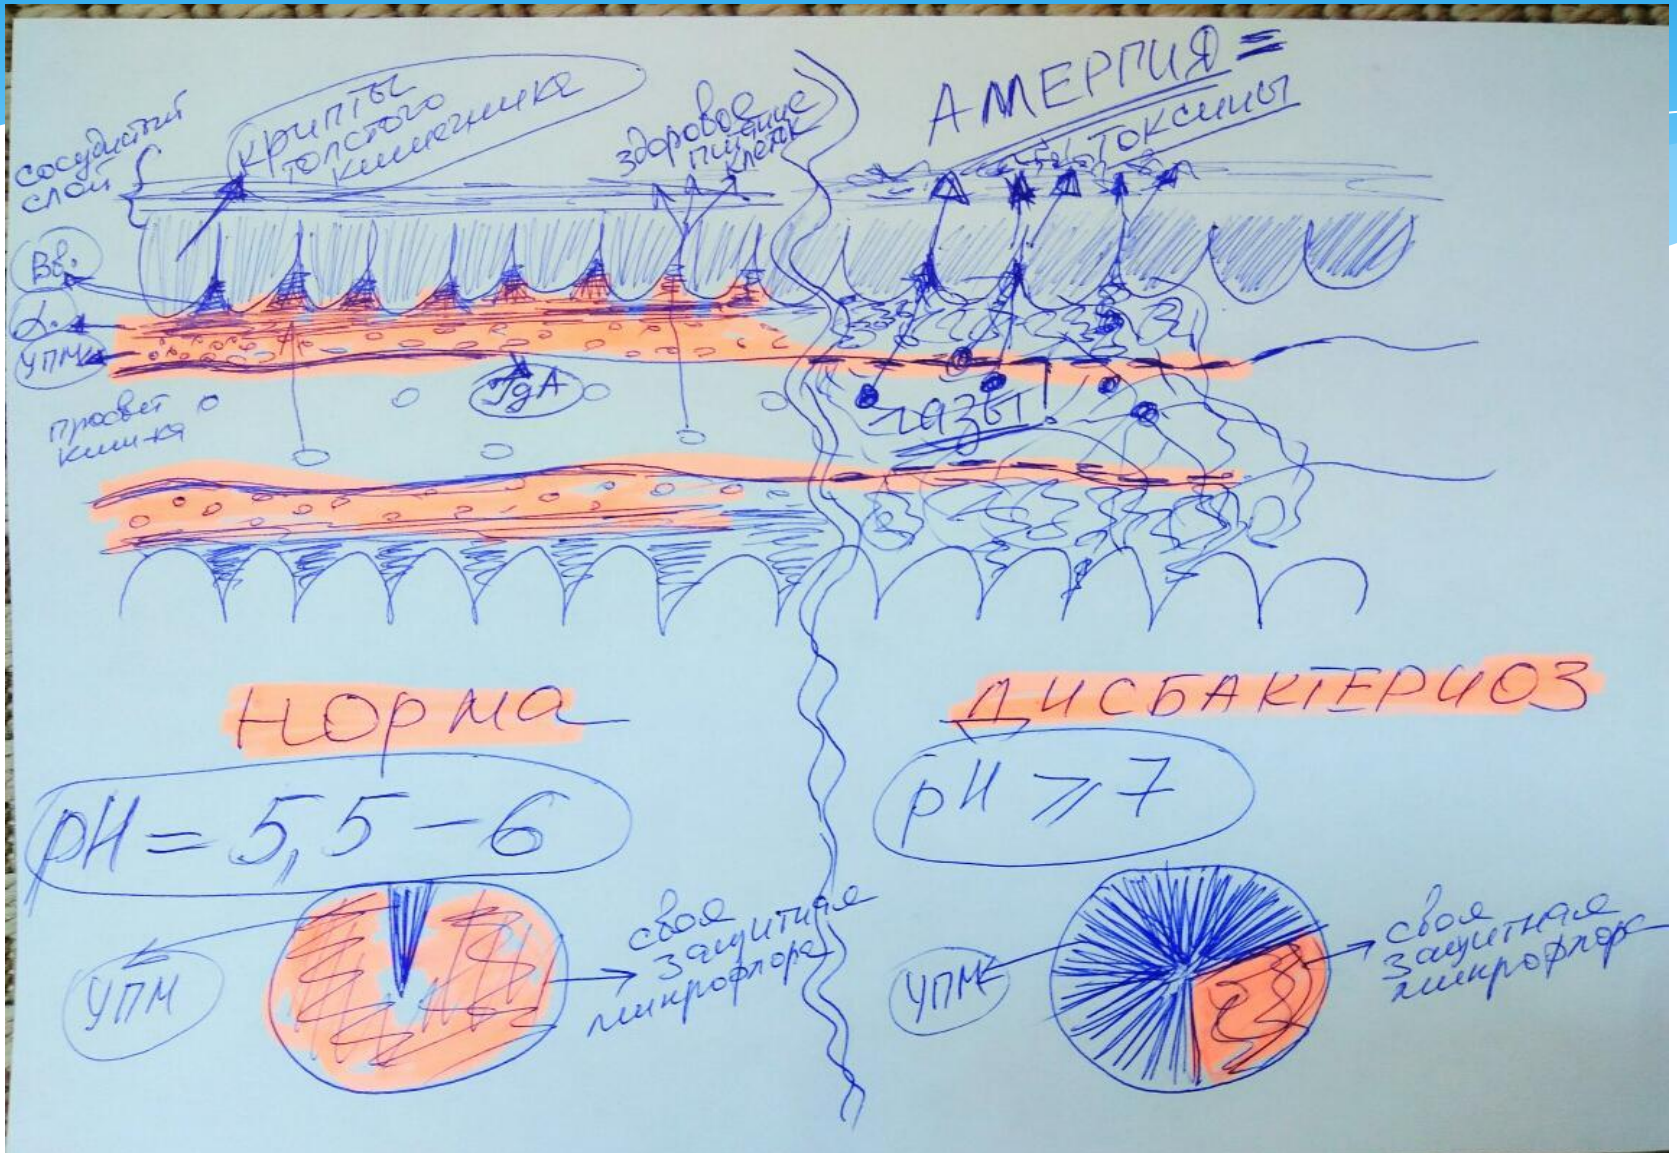 сосудистый
слой
крипты
толстого
кишечника
здоровое
питание
клеток
АЛЛЕРГИЯ =
токсины
Вв.
L.
УПМ
просвет
киш-ка
JgA
газы!
НОРМА
ДИСБАКТЕРИОЗ
pH = 5,5 – 6
pH ⩾ 7
УПМ
своя
защитная
микрофлора
УПМ
своя
защитная
микрофлора